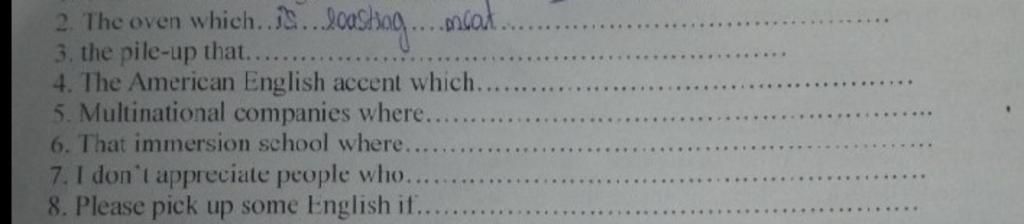 2. The oven which..is...roasting....meat..........................................................
3. the pile-up that..........................................................................
4. The American English accent which............................................................
5. Multinational companies where......................................................................
6. That immersion school where........................................................................
7. I don't appreciate people who.......................................................................
8. Please pick up some English if.....................................................................